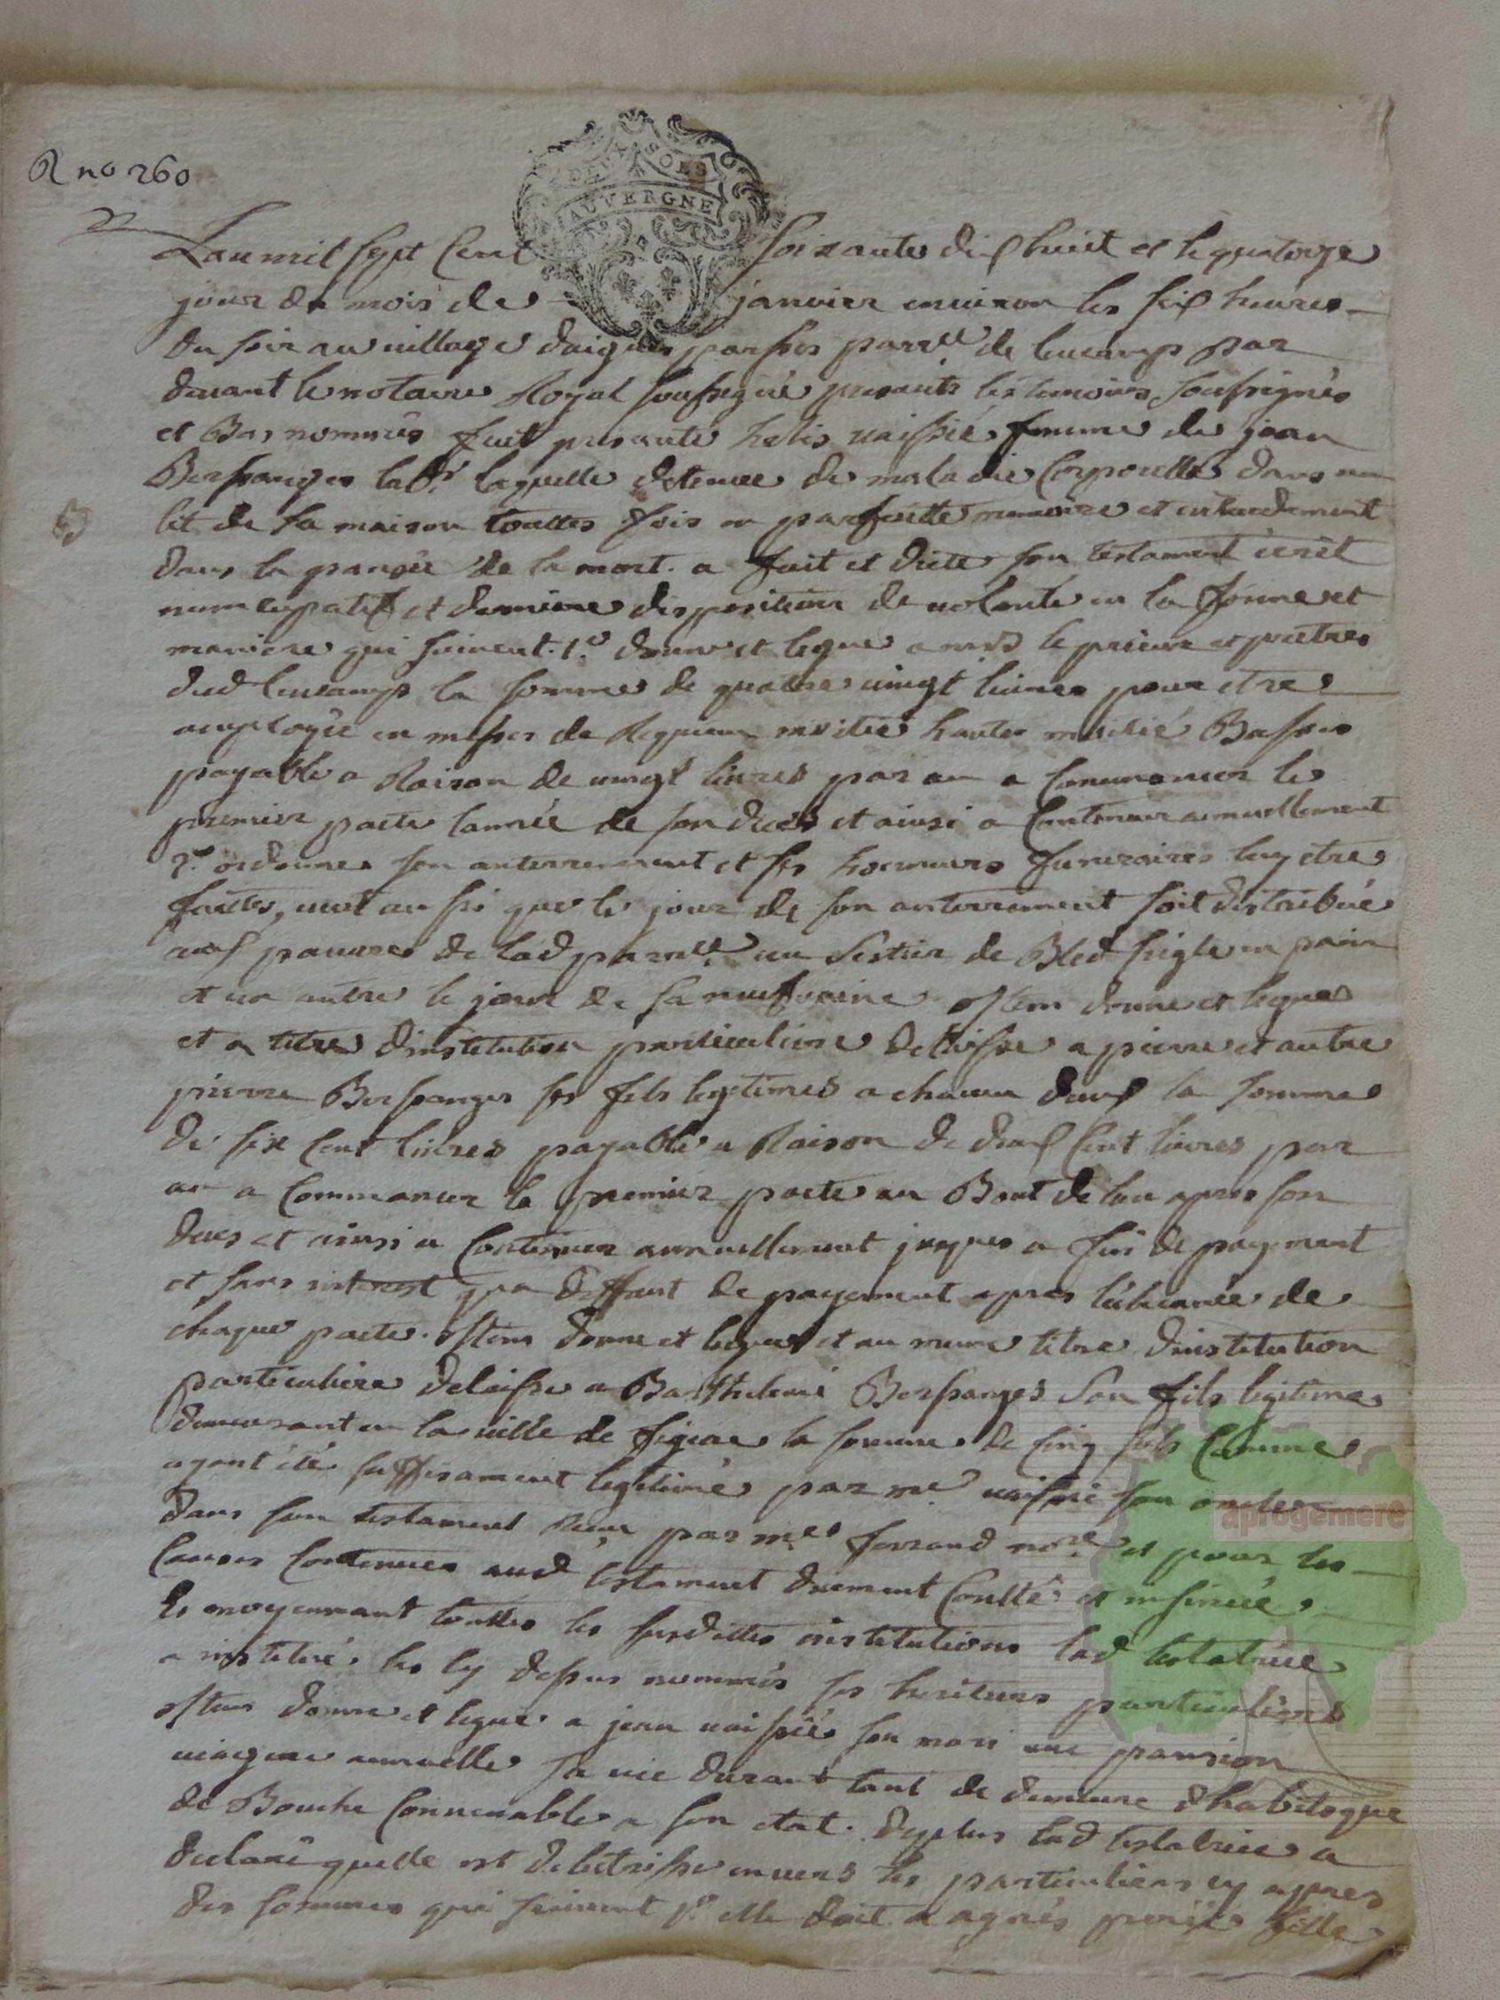 R no 260
DEUX SOLS
AUVERGNE
Lan mil sept Cent soixante dix huit et le quatorze
jour du mois de janvier environ les six heures
du soir au village daigues parses parr.lle de leucamp par
devant le notaire Royal soussigné presants les temoins soussignés
et Bas nommés fuit presante helis vaissié femme de jean
Bessanges lab.r laquelle detenue de maladie Corporelle dans un
lit de sa maison touttes fois en parfaitte memoire et entandement
dans la pansée de la mort. a fait et dicté son testament écrit
nuncupatif et derniere disposition de volonté en la forme et
maniere qui suivent. 1.o donne et legue a mrs le prieur et pretres
dud leucamp la somme de quatre vingt livres pour etre
employée en messes de Requiem moitié hautes moitié Basses
payable a Raison de vingt livres par an a Commancer le
premier pacte lannée de son deces et ainsi a Continuer annuellement
2.o ordonne son anterrement et ses honneurs funeraires luy etre
faittes, veut aussi que le jour de son anterrement soit distribué
aux pauvres de lad parr.lle un sestier de Bled seigle en pain
et un autre le jour de sa neufvaine. Item donne et legue
et a titre dinstitution particuliere delaisse a pierre et autre
pierre Bessanges ses fils legitimes a chacun deux la somme
de six Cent livres payable a Raison de deux Cent livres par
an a Commancer le premier pacte au Bout de lan apres son
deces et ainsi a Continuer annuellement jusques a fin de payment
et sans interest qua deffaut de payement apres léchéance de
chaque pacte. Item donne et legue et au meme titre dinstitution
particuliere delaisse a Barthelemi Bessanges son fils legitime
demeurant en la ville de figeac la somme de cinq sols Comme
ayant été suffisament legitimé par me vaissié son oncle
dans son testament Recu par me ferrand no.re et pour les
Causes Contenues aud testament duement Contlé et insinué.
Et moyennant touttes les susdittes institutions lad testatrice
a institué les cy dessus nommés ses heritiers particuliers
Item donne et legue a jean vaissié son mari une pansion
viagere annuelle sa vie durant tant de demeure dhabit que
de Bouche Convenable a son etat. deplus lad testatrice a
declaré quelle est debitrisse envers les particuliers cy apres
des sommes qui suivent 1.o elle doit a agnés fille
aprogemere